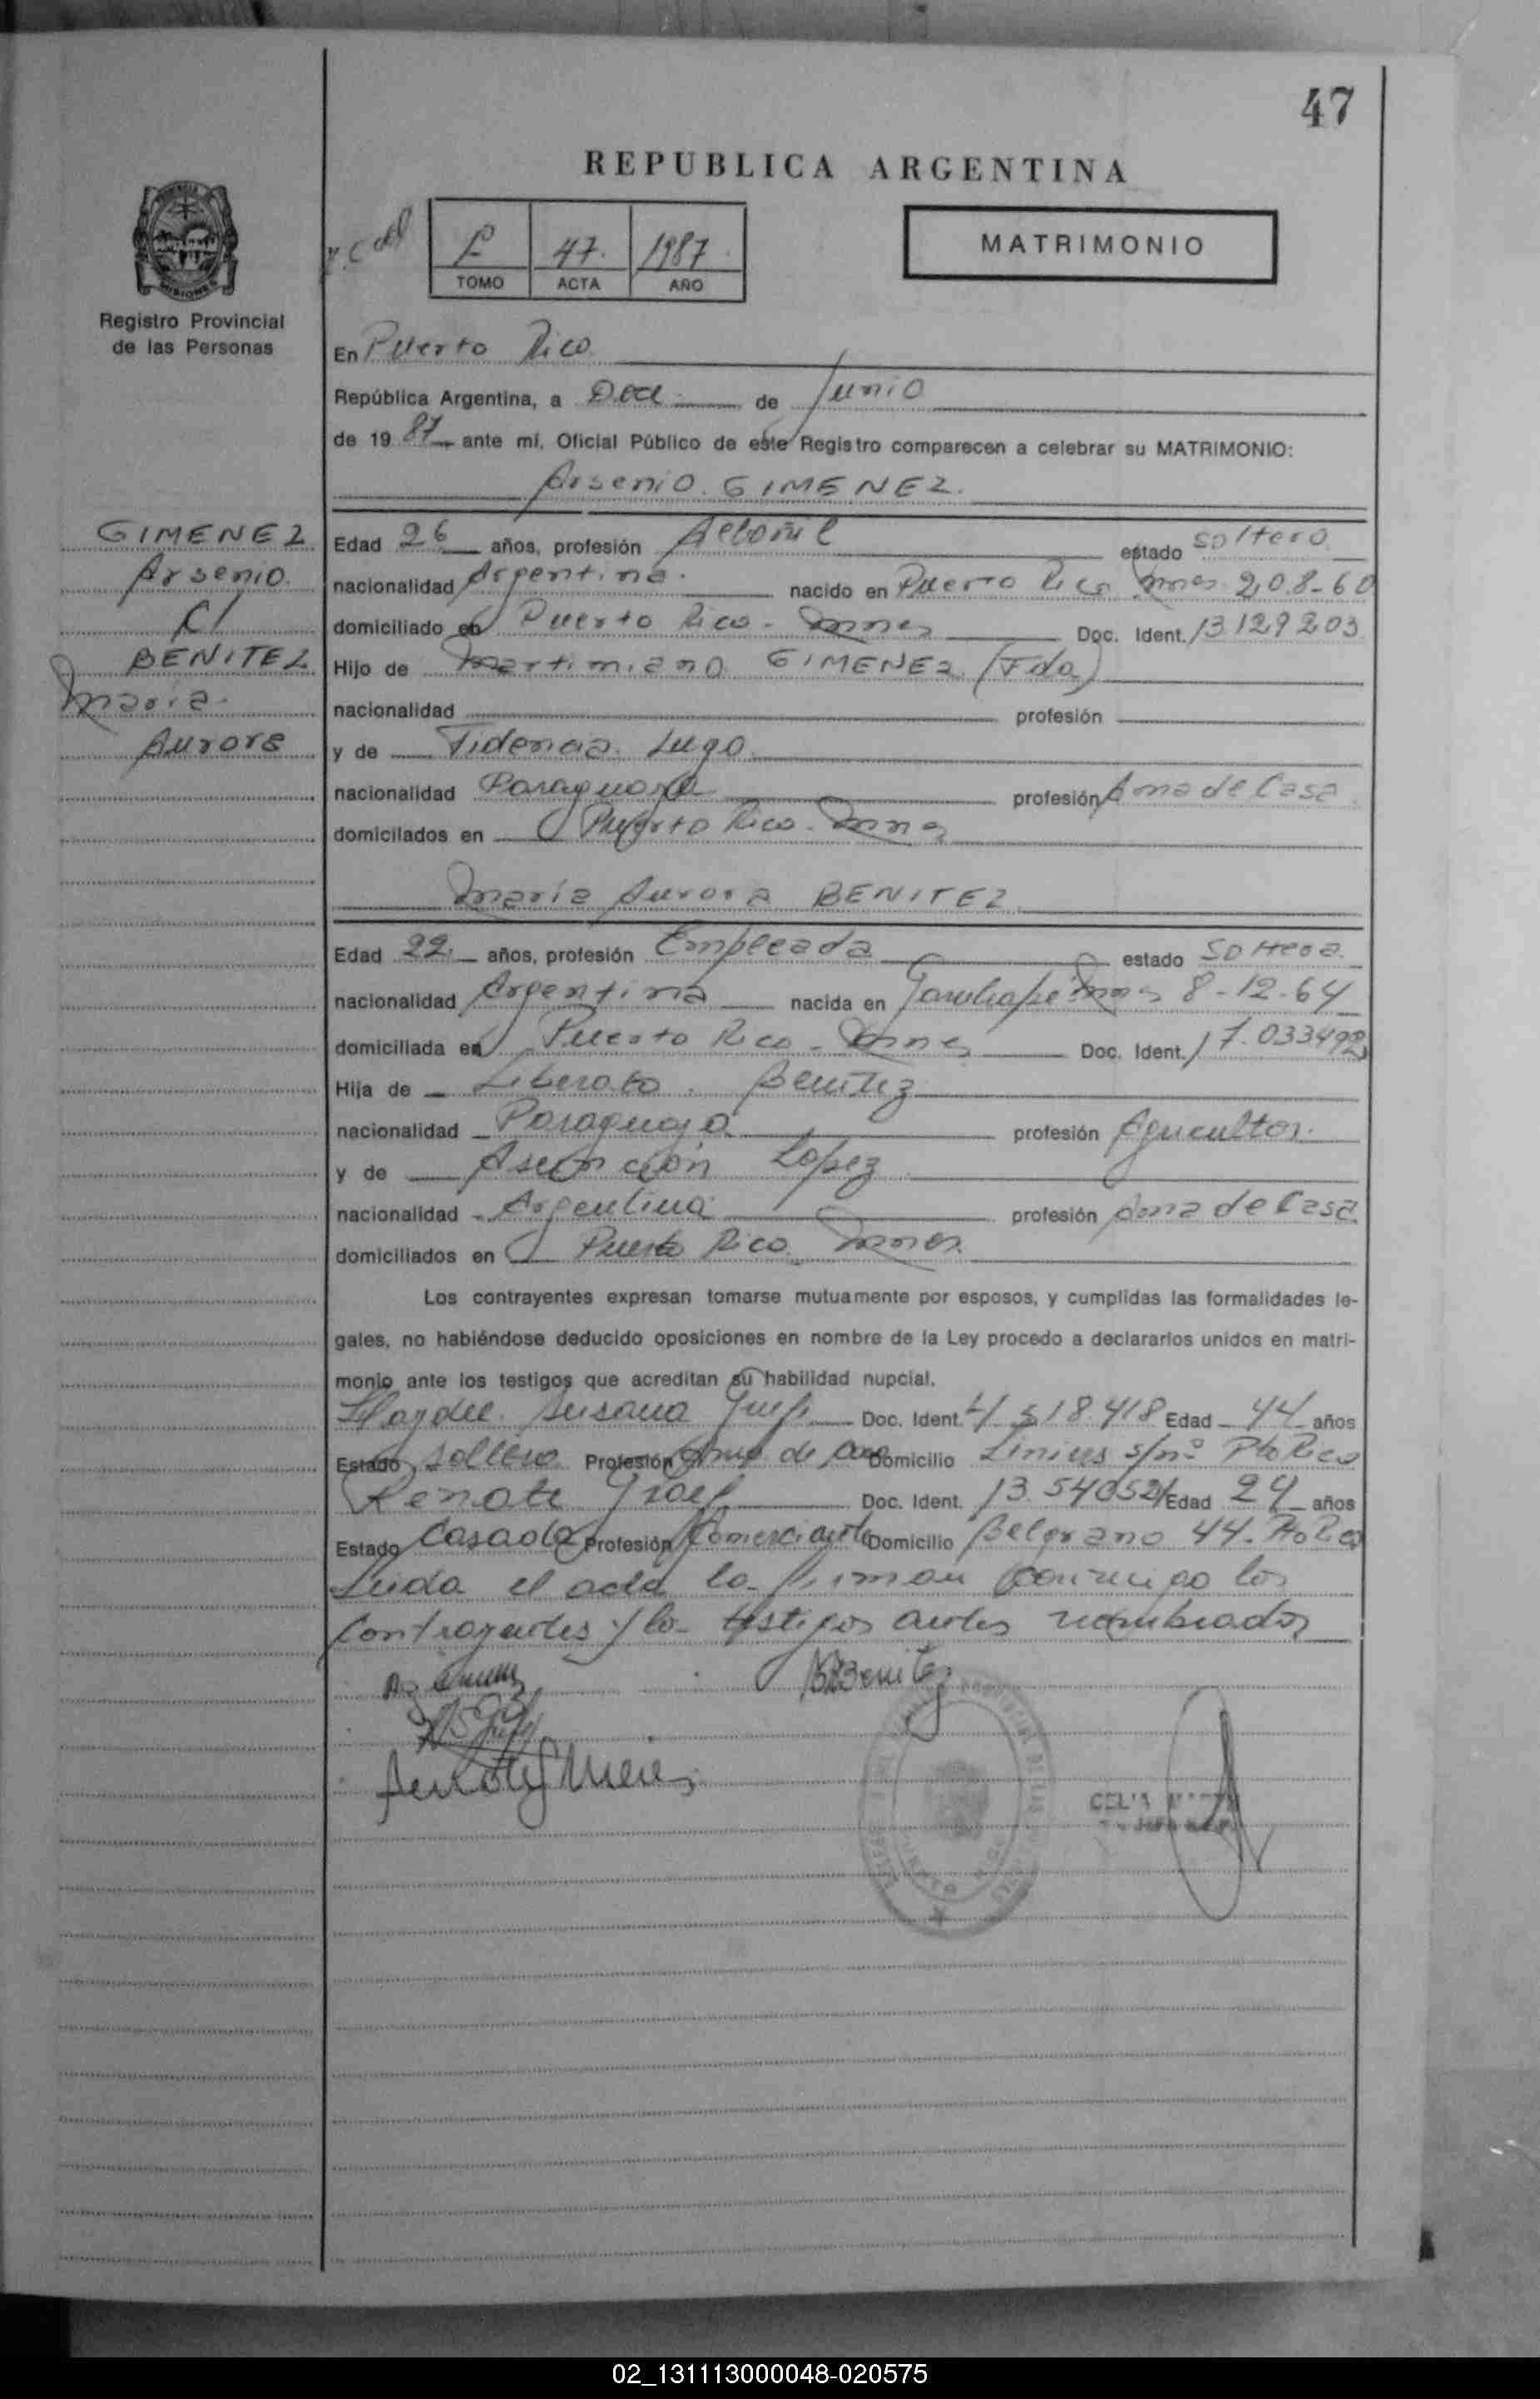 47
REPUBLICA ARGENTINA
47. 1987
TOMO ACTA AÑO
MATRIMONIO
MISIONES
Registro Provincial
de las Personas
En Puerto Rico
República Argentina, a Doce de Junio
de 19 87 ante mí, Oficial Público de este Registro comparecen a celebrar su MATRIMONIO:
Arsenio GIMENEZ.
GIMENEZ
Arsenio
c/
BENITEZ
Maria
Aurora
Edad 26 años, profesión Albañil estado soltero
nacionalidad Argentina nacido en Puerto Rico Mnes 2,08-60
domiciliado en Puerto Rico - Mnes Doc. Ident. 13129203
Hijo de Martimiano GIMENEZ (Fdo)
nacionalidad profesión
y de Fidencia Lugo
nacionalidad Paraguaya profesión Ama de Casa
domicilados en Puerto Rico - Mnes
María Aurora BENITEZ
Edad 22 años, profesión Empleada estado Soltera
nacionalidad Argentina nacida en Mnes 8-12-64
domiciliada en Puerto Rico - Mnes Doc. Ident. 17.033492
Hija de Liberato Benitez
nacionalidad Paraguaya profesión Agricultor
y de Asunción Lopez
nacionalidad Argentina profesión Ama de Casa
domiciliados en Puerto Rico Mnes
Los contrayentes expresan tomarse mutuamente por esposos, y cumplidas las formalidades le-
gales, no habiéndose deducido oposiciones en nombre de la Ley procedo a declararlos unidos en matri-
monio ante los testigos que acreditan su habilidad nupcial.
Susana Doc. Ident. 4.518.418 Edad 44 años
Estado soltera Profesión de Domicilio Liniers s/nº Pto Rico
Renate Doc. Ident. 13.540521 Edad 27 años
Estado Casada Profesión Comerciante Domicilio Belgrano 44 - Pto Rico
Leida el acta la firman conmigo los
contrayentes y los testigos antes nombrados
Benitez
CELIA
02_131113000048-020575